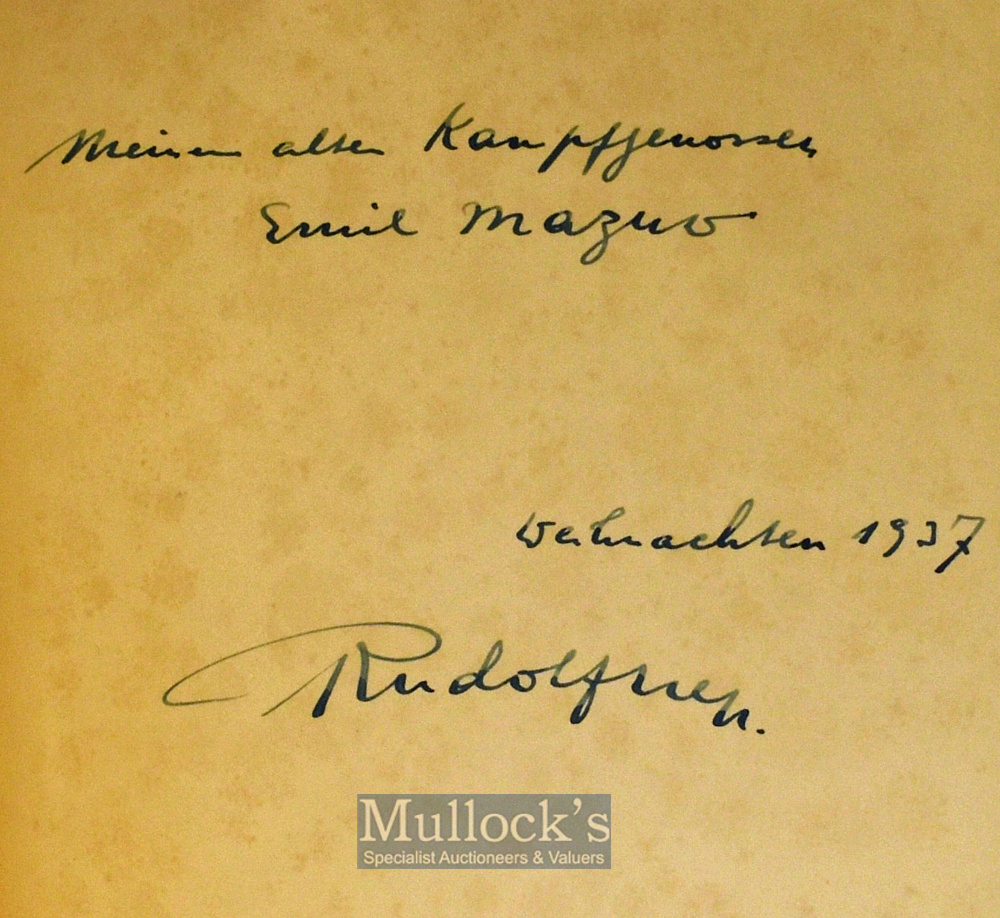 Meinem alten Kampfgenossen
Emil Mazuw
Weihnachten 1937
Rudolf Hess.
Mullock's
Specialist Auctioneers & Valuers